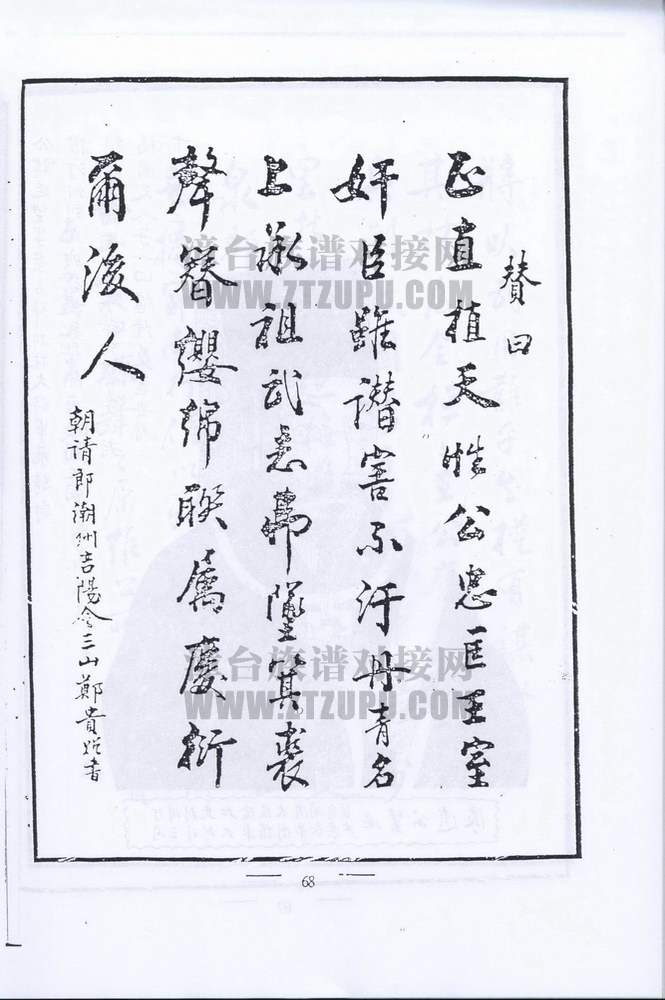 贊曰
正直植天性公忠匡王室
奸臣雖潛害不汙丹青名
上承祖武志弗墜箕裘
聲簪纓綿聯屬慶衍
爾後人
朝請郎潮州吉陽令三山鄭貴書
淦台族谱对接网
WWW.ZTZUPU.COM
台族谱对接网
WWW.ZTZUPU.COM
68